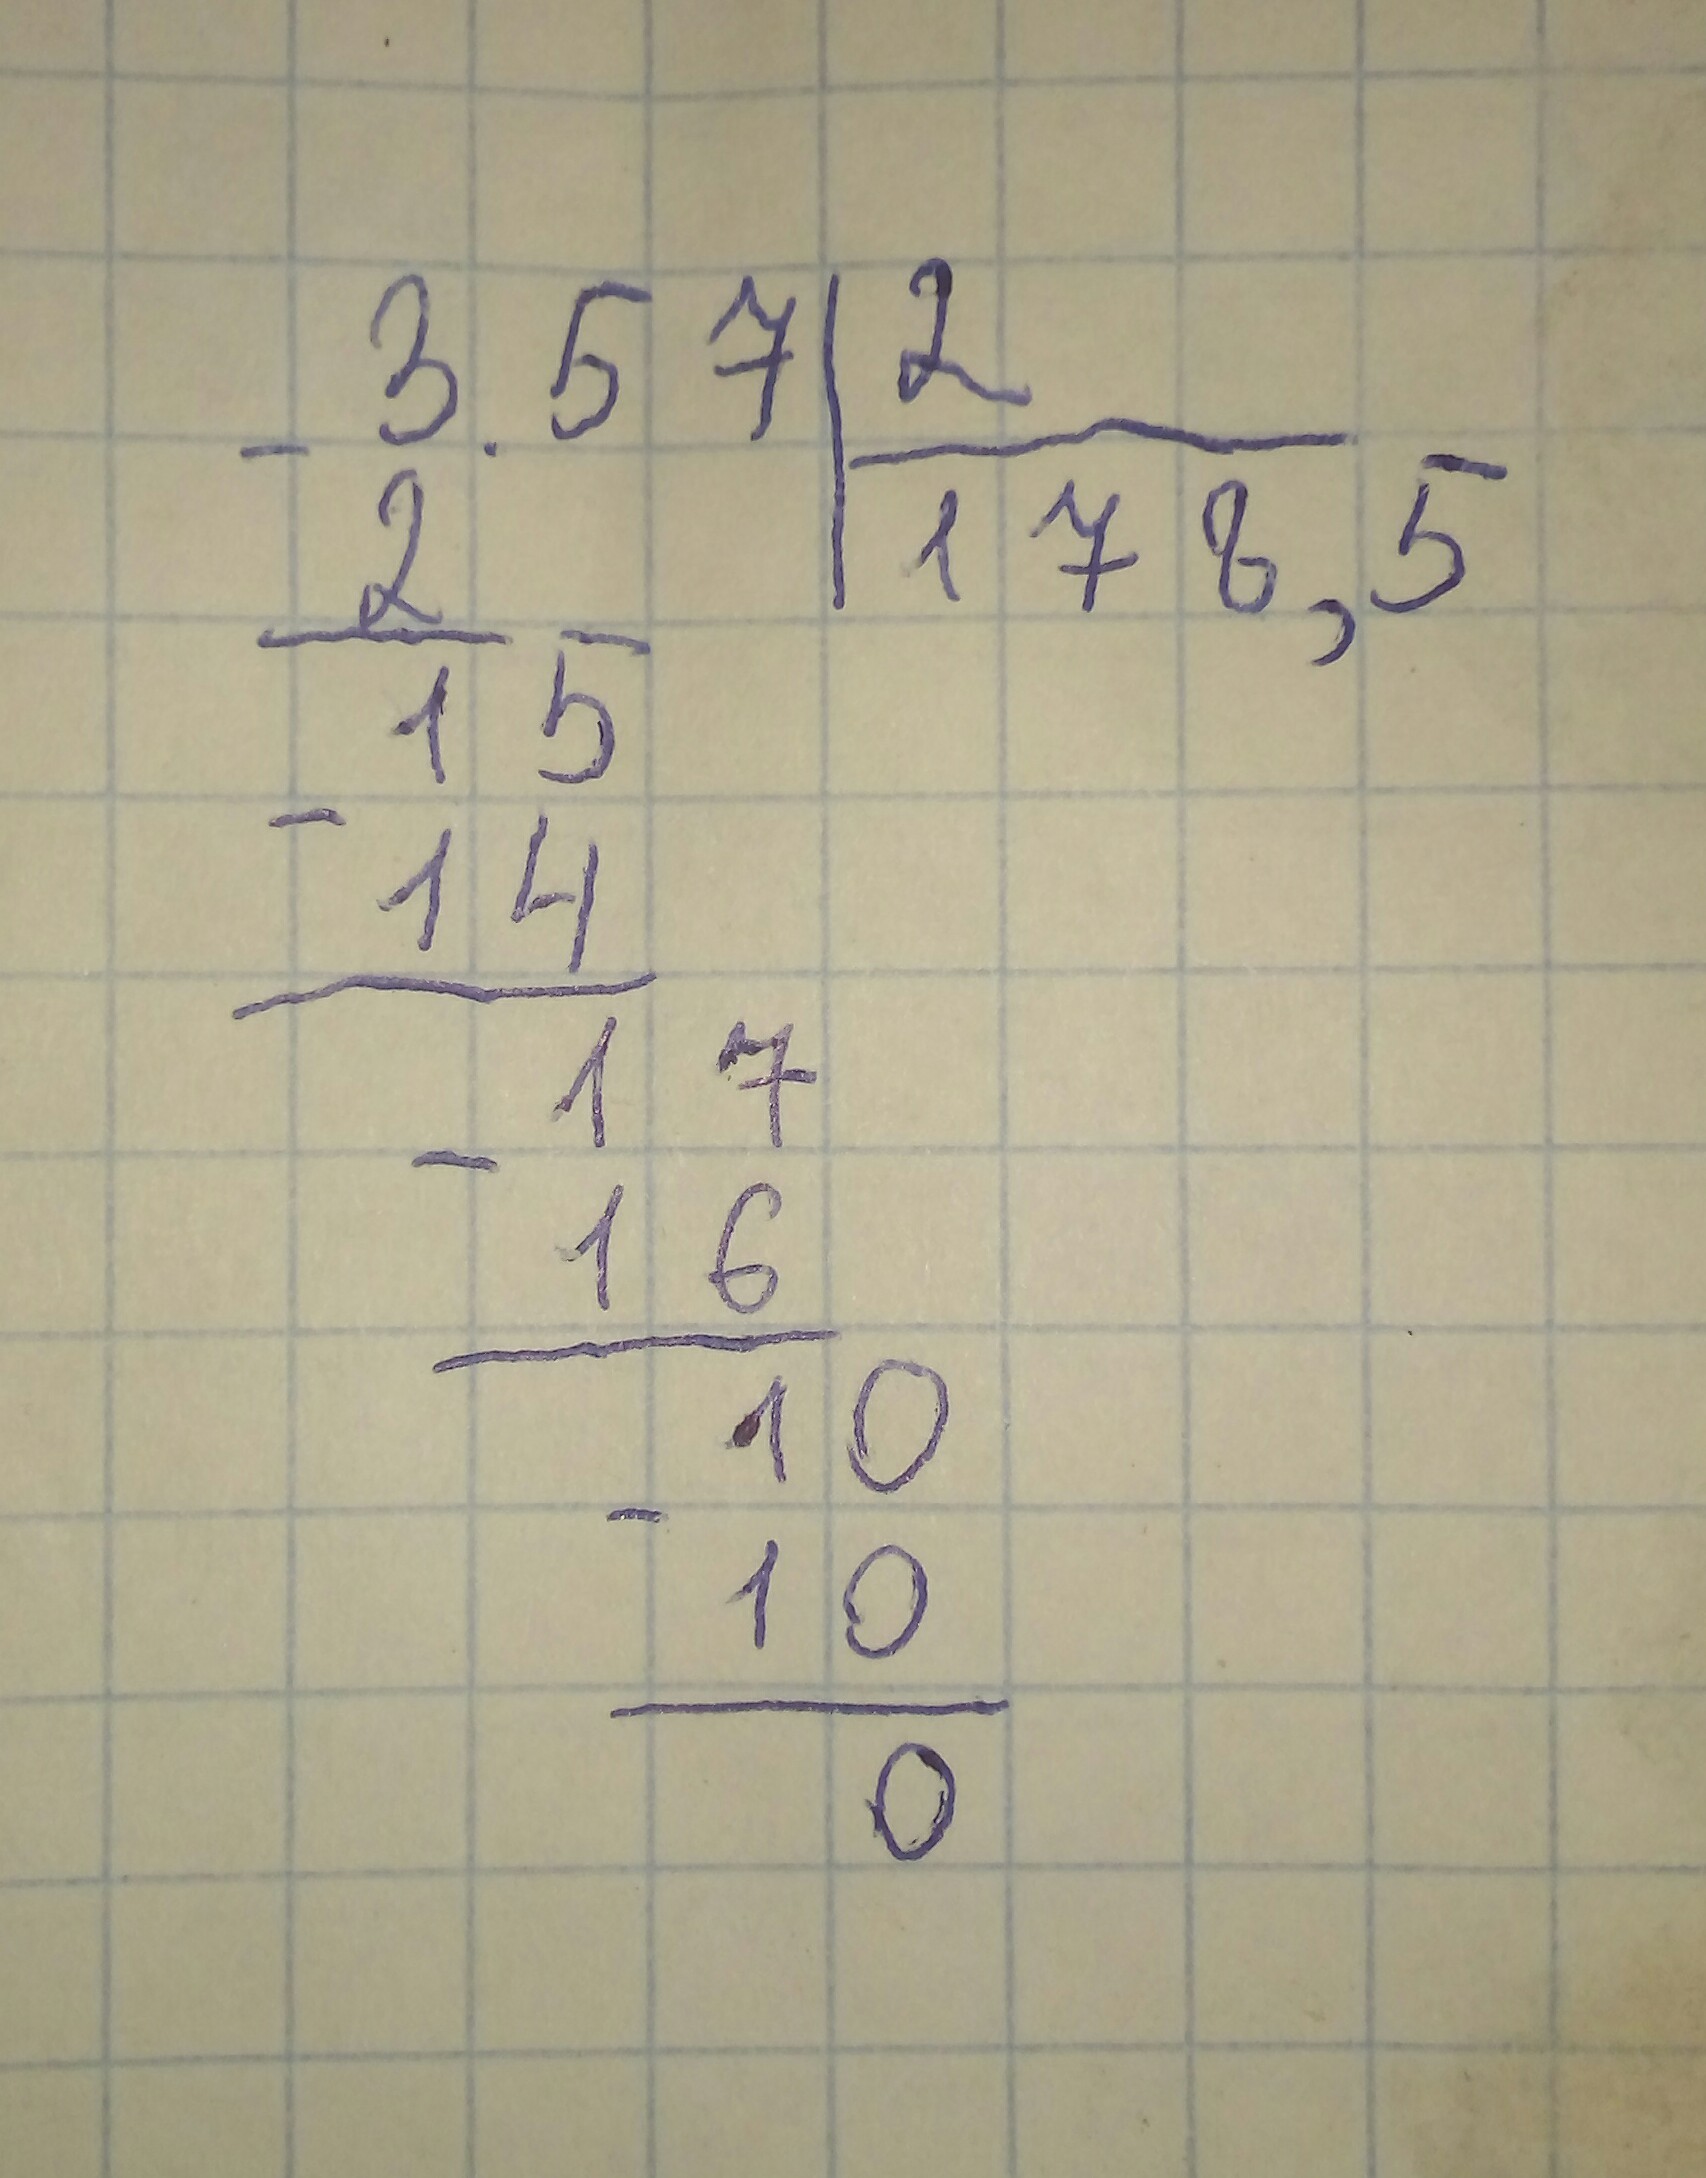 3.57 2
- 2 178,5
15
- 14
17
- 16
10
- 10
0